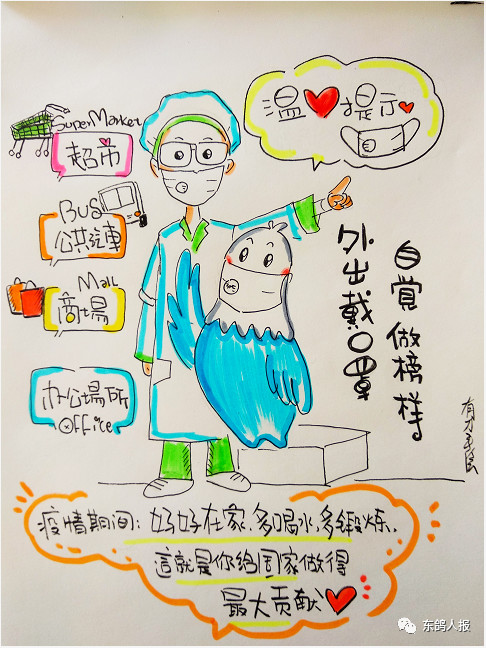 温❤提示❤
SuperMarket
超市
BUS
公共汽車
Mall
商場
办公場所
office
外出戴口罩
自覚做榜样
疫情期间：好好在家.多喝水,多鍛炼.
這就是你给国家做得
最大贡献❤
东鸽人报